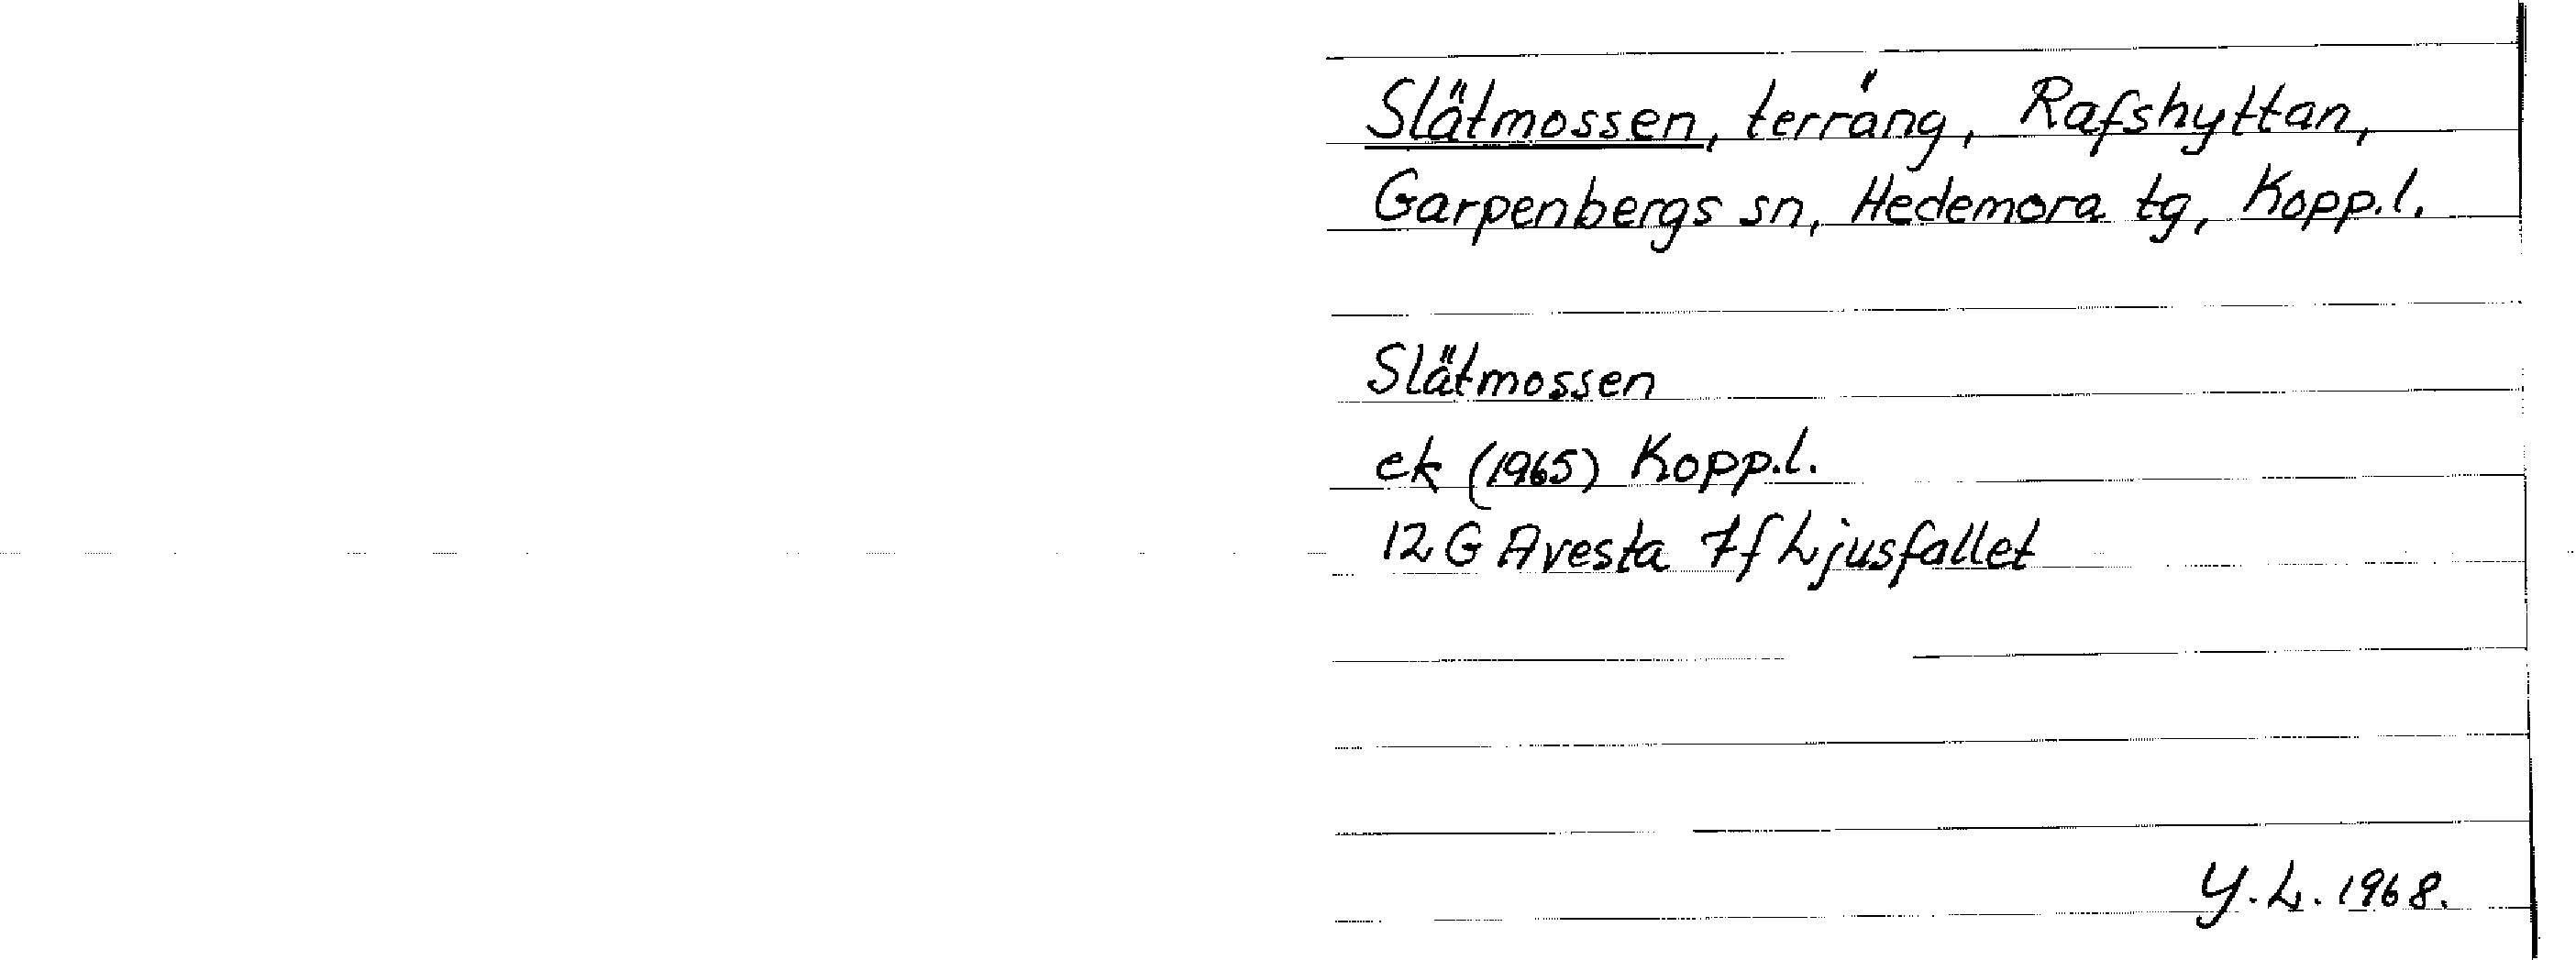 Slätmossen, terräng, Rafshyttan,
Garpenbergs sn, Hedemora tg, Kopp.l.
Slätmossen
ek (1965) Kopp.l.
12 G Avesta 7f Ljusfallet
Y.L. 1968.